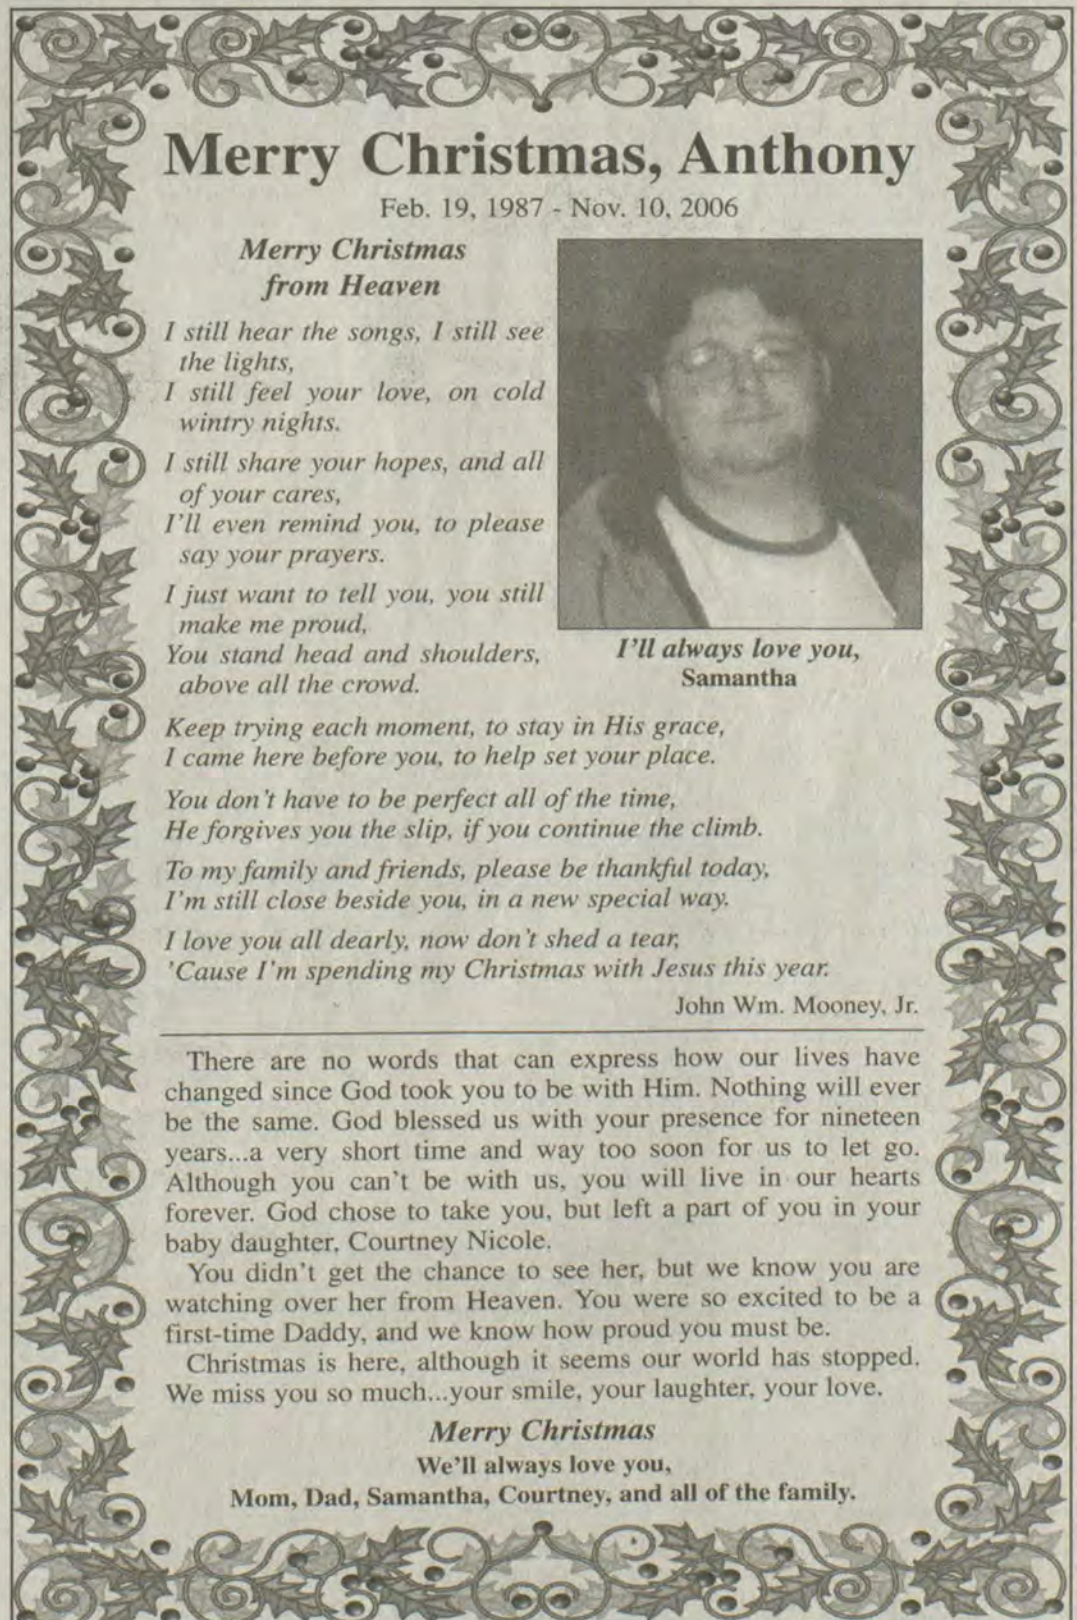 Merry Christmas, Anthony
Feb. 19, 1987 - Nov. 10, 2006
Merry Christmas
from Heaven
I still hear the songs, I still see
the lights,
I still feel your love, on cold
wintry nights.
I still share your hopes, and all
of your cares,
I'll even remind you, to please
say your prayers.
I just want to tell you, you still
make me proud,
You stand head and shoulders,
above all the crowd.
I'll always love you,
Samantha
Keep trying each moment, to stay in His grace,
I came here before you, to help set your place.
You don't have to be perfect all of the time,
He forgives you the slip, if you continue the climb.
To my family and friends, please be thankful today,
I'm still close beside you, in a new special way.
I love you all dearly, now don't shed a tear,
'Cause I'm spending my Christmas with Jesus this year.
John Wm. Mooney, Jr.
There are no words that can express how our lives have
changed since God took you to be with Him. Nothing will ever
be the same. God blessed us with your presence for nineteen
years...a very short time and way too soon for us to let go.
Although you can't be with us, you will live in our hearts
forever. God chose to take you, but left a part of you in your
baby daughter, Courtney Nicole.
You didn't get the chance to see her, but we know you are
watching over her from Heaven. You were so excited to be a
first-time Daddy, and we know how proud you must be.
Christmas is here, although it seems our world has stopped.
We miss you so much...your smile, your laughter, your love.
Merry Christmas
We'll always love you,
Mom, Dad, Samantha, Courtney, and all of the family.